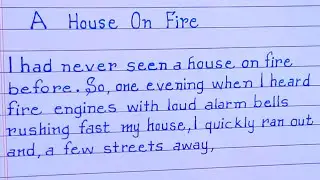 A House On Fire
I had never seen a house on fire
before. So, one evening when I heard
fire engines with loud alarm bells
rushing fast my house, I quickly ran out
and, a few streets away,